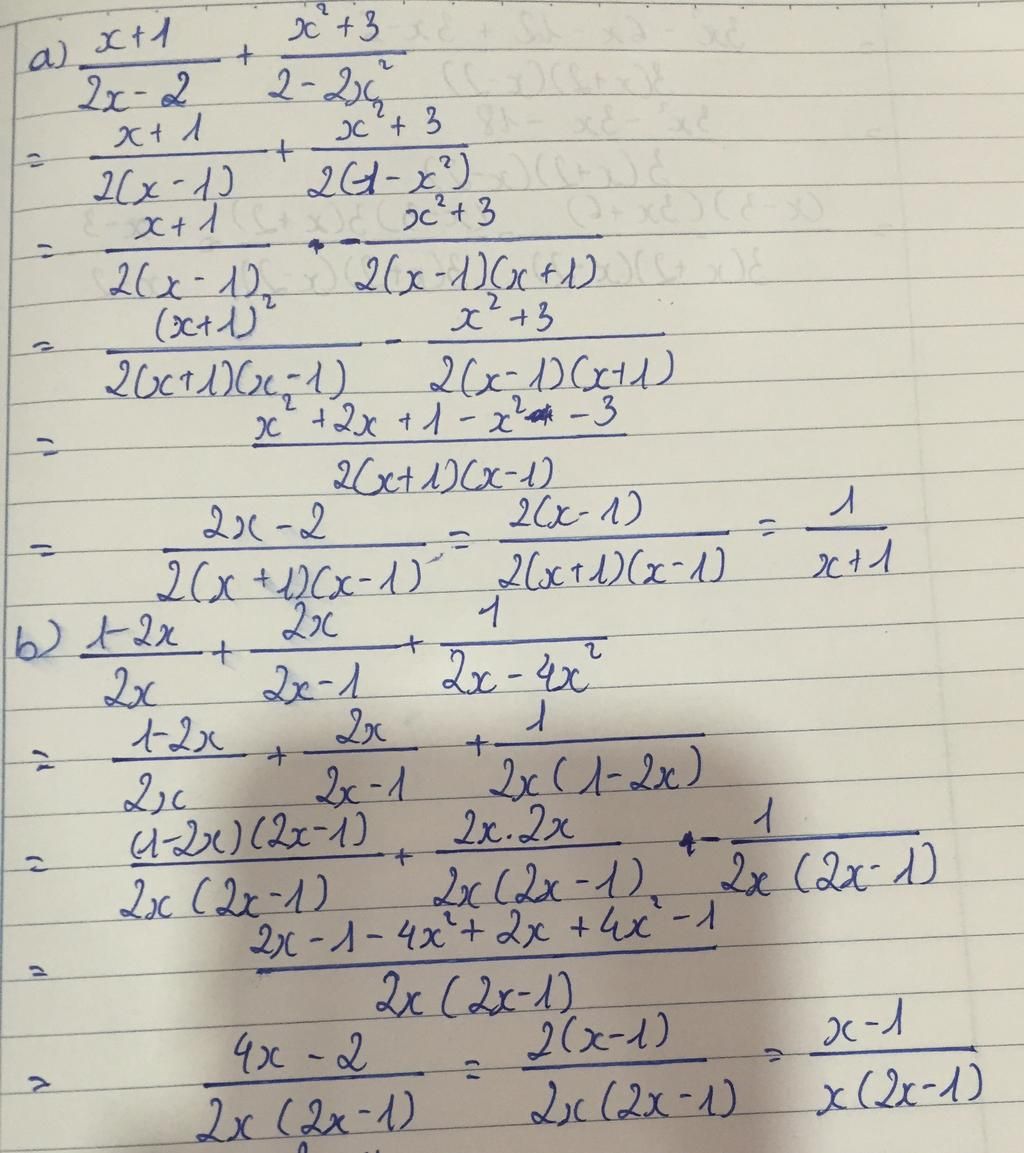 a) (x+1)/(2x-2) + (x²+3)/(2-2x²)
= (x+1)/(2(x-1)) + (x²+3)/(2(1-x²))
= (x+1)/(2(x-1)) - (x²+3)/(2(x-1)(x+1))
= (x+1)²/(2(x+1)(x-1)) - (x²+3)/(2(x-1)(x+1))
= (x²+2x+1-x²-3)/(2(x+1)(x-1))
= (2x-2)/(2(x+1)(x-1)) = 2(x-1)/(2(x+1)(x-1)) = 1/(x+1)
b) (1-2x)/(2x) + 2x/(2x-1) + 1/(2x-4x²)
= (1-2x)/(2x) + 2x/(2x-1) + 1/(2x(1-2x))
= (1-2x)(2x-1)/(2x(2x-1)) + 2x.2x/(2x(2x-1)) - 1/(2x(2x-1))
= (2x-1-4x²+2x+4x²-1)/(2x(2x-1))
= (4x-2)/(2x(2x-1)) = 2(x-1)/(2x(2x-1)) = (x-1)/(x(2x-1))